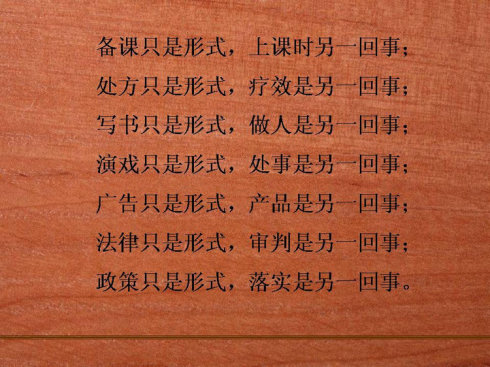 备课只是形式，上课时另一回事；
处方只是形式，疗效是另一回事；
写书只是形式，做人是另一回事；
演戏只是形式，处事是另一回事；
广告只是形式，产品是另一回事；
法律只是形式，审判是另一回事；
政策只是形式，落实是另一回事。